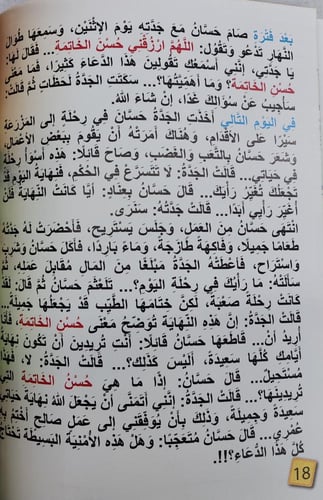 بَعْدَ فَتْرَةٍ صَامَ حَسَّانُ مَعَ جَدَّتِهِ يَوْمَ الاِثْنَيْنِ، وَسَمِعَهَا طُوَالَ
النَّهَارِ تَدْعُو وَتَقُولُ: اللَّهُمَّ ارْزُقْنِي حُسْنَ الْخَاتِمَةِ... فَقَالَ لَهَا:
يَا جَدَّتِي، إِنَّنِي أَسْمَعُكِ تَقُولِينَ هَذَا الدُّعَاءَ كَثِيرًا، فَمَا مَعْنَى
حُسْنِ الْخَاتِمَةِ؟ وَمَا أَهَمِّيَّتُهَا؟... سَكَتَتِ الْجَدَّةُ لَحَظَاتٍ ثُمَّ قَالَتْ:
سَأُجِيبُ عَنْ سُؤَالِكَ غَدًا، إِنْ شَاءَ اللَّهُ.
فِي الْيَوْمِ التَّالِي أَخَذَتِ الْجَدَّةُ حَسَّانَ فِي رِحْلَةٍ إِلَى الْمَزْرَعَةِ
سَيْرًا عَلَى الأَقْدَامِ، وَهُنَاكَ أَمَرَتْهُ أَنْ يَقُومَ بِبَعْضِ الأَعْمَالِ،
وَشَعَرَ حَسَّانُ بِالتَّعَبِ وَالْغَضَبِ، وَصَاحَ قَائِلًا: هَذِهِ أَسْوَأُ رِحْلَةٍ
فِي حَيَاتِي... قَالَتِ الْجَدَّةُ: لَا تَتَسَرَّعْ فِي الْحُكْمِ، فَنِهَايَةُ الْيَوْمِ قَدْ
تَجْعَلُكَ تُغَيِّرُ رَأْيَكَ... قَالَ حَسَّانُ بِعِنَادٍ: أَيًّا كَانَتِ النِّهَايَةُ فَلَنْ
أُغَيِّرَ رَأْيِي أَبَدًا... قَالَتْ جَدَّتُهُ: سَنَرَى.
انْتَهَى حَسَّانُ مِنَ الْعَمَلِ، وَجَلَسَ يَسْتَرِيحُ، فَأَحْضَرَتْ لَهُ جَدَّتُهُ
طَعَامًا جَمِيلًا، وَفَاكِهَةً طَازَجَةً، وَمَاءً بَارِدًا، فَأَكَلَ حَسَّانُ وَشَرِبَ
وَاسْتَرَاحَ، فَأَعْطَتْهُ الْجَدَّةُ مَبْلَغًا مِنَ الْمَالِ مُقَابِلَ عَمَلِهِ، ثُمَّ
سَأَلَتْهُ: مَا رَأْيُكَ فِي رِحْلَةِ الْيَوْمِ؟... تَلَعْثَمَ حَسَّانُ ثُمَّ قَالَ: لَقَدْ
كَانَتْ رِحْلَةً صَعْبَةً، لَكِنَّ خِتَامَهَا الطَّيِّبَ قَدْ يَجْعَلُهَا جَمِيلَةً.
قَالَتِ الْجَدَّةُ: إِنَّ هَذِهِ النِّهَايَةَ تُوَضِّحُ مَعْنَى حُسْنِ الْخَاتِمَةِ،
أُرِيدُ أَنْ... قَاطَعَهَا حَسَّانُ قَائِلًا: أَنْتِ تُرِيدِينَ أَنْ تَكُونَ نِهَايَةُ
أَيَّامِكِ كُلُّهَا سَعِيدَةً، أَلَيْسَ كَذَلِكَ؟... قَالَتِ الْجَدَّةُ: لَا، فَهَذَا
مُسْتَحِيلٌ... قَالَ حَسَّانُ: إِذًا مَا هِيَ حُسْنُ الْخَاتِمَةِ الَّتِي
تُرِيدِينَهَا؟... قَالَتِ الْجَدَّةُ: إِنَّنِي أَتَمَنَّى أَنْ يَجْعَلَ اللَّهُ نِهَايَةَ حَيَاتِي
سَعِيدَةً وَجَمِيلَةً، وَذَلِكَ بِأَنْ يُوَفِّقَنِي إِلَى عَمَلٍ صَالِحٍ أَخْتِمُ بِهِ
عُمْرِي... قَالَ حَسَّانُ مُتَعَجِّبًا: وَهَلْ هَذِهِ الأُمْنِيَةُ الْبَسِيطَةُ تَحْتَاجُ
كُلَّ هَذَا الدُّعَاءِ؟!!.
18